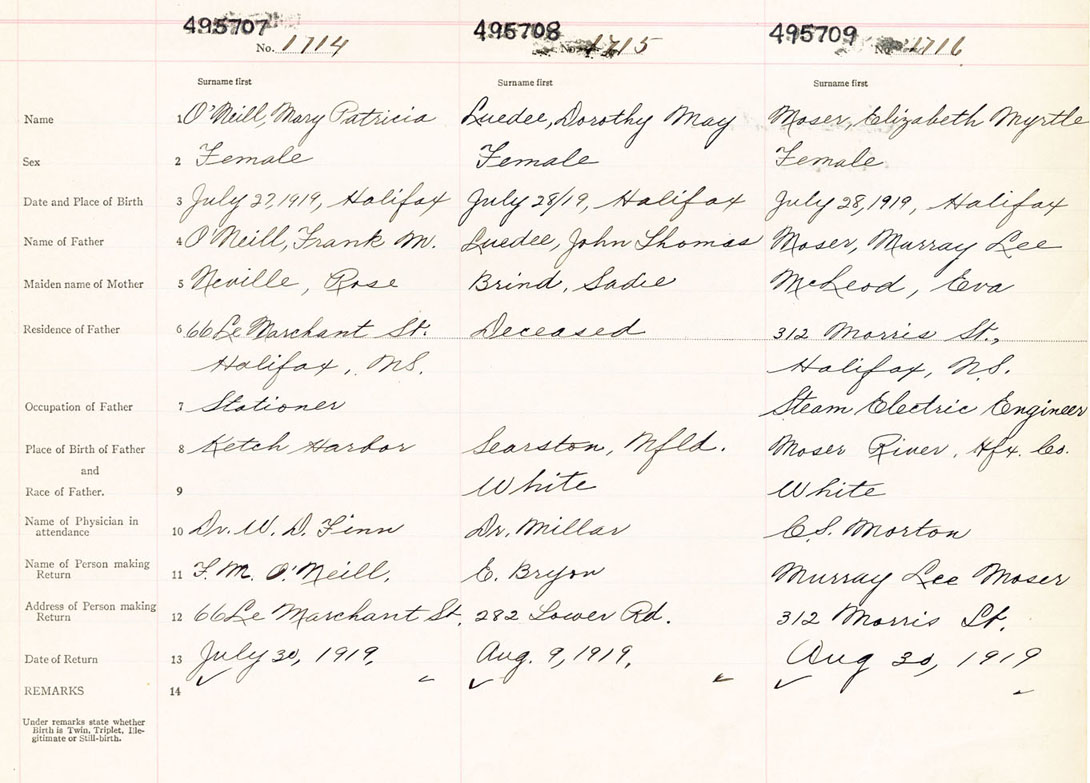 495707 495708 495709
No. 1714 No. 1715 No. 1716
Surname first Surname first Surname first
Name 1 O'Neill, Mary Patricia Luedee, Dorothy May Moser, Elizabeth Myrtle
Sex 2 Female Female Female
Date and Place of Birth 3 July 27, 1919, Halifax July 28/19, Halifax July 28, 1919, Halifax
Name of Father 4 O'Neill, Frank M. Luedee, John Thomas Moser, Murray Lee
Maiden name of Mother 5 Neville, Rose Brind, Sadie McLeod, Eva
Residence of Father 6 66 Le Marchant St. Deceased 312 Morris St.,
Halifax, N.S. Halifax, N.S.
Occupation of Father 7 Stationer Steam Electric Engineer
Place of Birth of Father 8 Ketch Harbor Searston, Nfld. Moser River, Hfx. Co.
and
Race of Father. 9 White White
Name of Physician in
attendance 10 Dr. W. D. Finn Dr. Millar C.S. Morton
Name of Person making
Return 11 F. M. O'Neill, E. Bryon Murray Lee Moser
Address of Person making
Return 12 66 Le Marchant St. 282 Lower Rd. 312 Morris St.
Date of Return 13 July 30, 1919. Aug. 9, 1919. Aug 30, 1919
REMARKS 14
Under remarks state whether
Birth is Twin, Triplet, Ille-
gitimate or Still-birth.